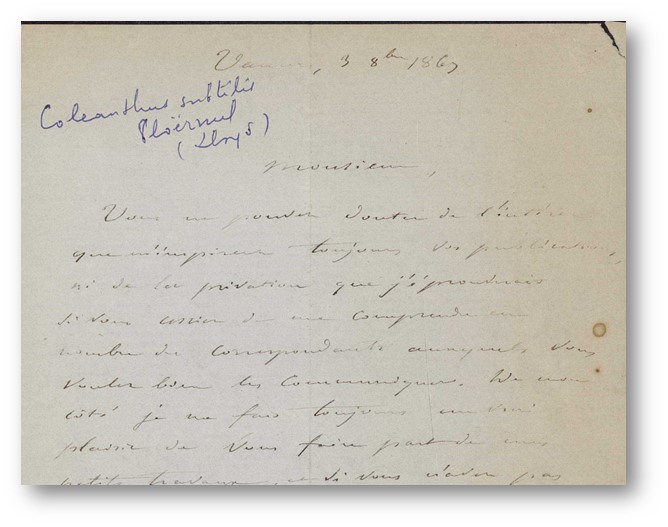 Vannes, 3 8bre 1867
Coleanthus subtilis
Ploërmel
(Lloyd)
Monsieur,
Vous ne pouvez douter de l'intérêt
que m'inspirent toujours vos publications,
ni de la privation que j'éprouverais
si vous cessiez de me comprendre au
nombre des correspondants auxquels vous
voulez bien les communiquer. De mon
côté je me fais toujours un vrai
plaisir de vous faire part de mes
petits travaux, et si vous n'avez pas